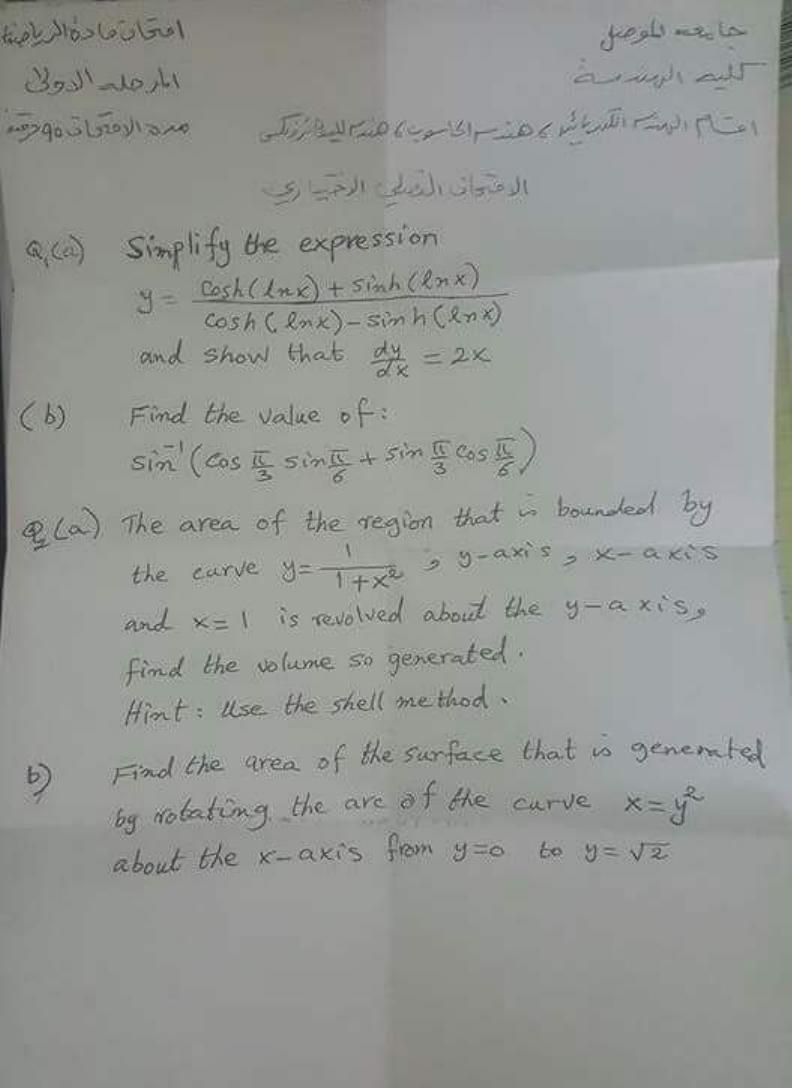 جامعه الموصل
امتحان مادة الرياضيات
كليه الهندسة
المرحله الاولى
اقسام الهندسه الكهربائيه، هندسه الحاسوب،
مدة الامتحان ٩٠ دقيقة
الامتحان الفصلي الاختياري
Q1(a) Simplify the expression
y = cosh(lnx) + sinh(lnx) / cosh(lnx) - sinh(lnx)
and show that dy/dx = 2x
(b) Find the value of:
sin⁻¹(cos π/3 sin π/6 + sin π/3 cos π/6)
Q2(a) The area of the region that is bounded by
the curve y = 1/1+x², y-axis, x-axis
and x=1 is revolved about the y-axis,
find the volume so generated.
Hint: Use the shell method.
b) Find the area of the surface that is generated
by rotating the arc of the curve x=y²
about the x-axis from y=0 to y=√2